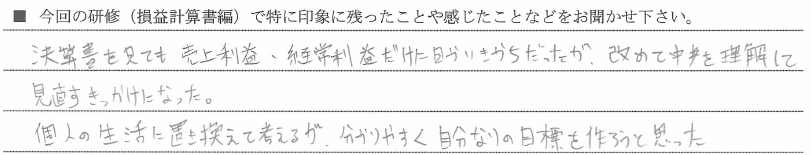 ■ 今回の研修（損益計算書編）で特に印象に残ったことや感じたことなどをお聞かせ下さい。
決算書を見ても 売上利益・経常利益だけに目がいきがちだったが、改めて中身を理解して
見直すきっかけになった。
個人の生活に置き換えて考えるが、分かりやすく自分なりの目標を作ろうと思った